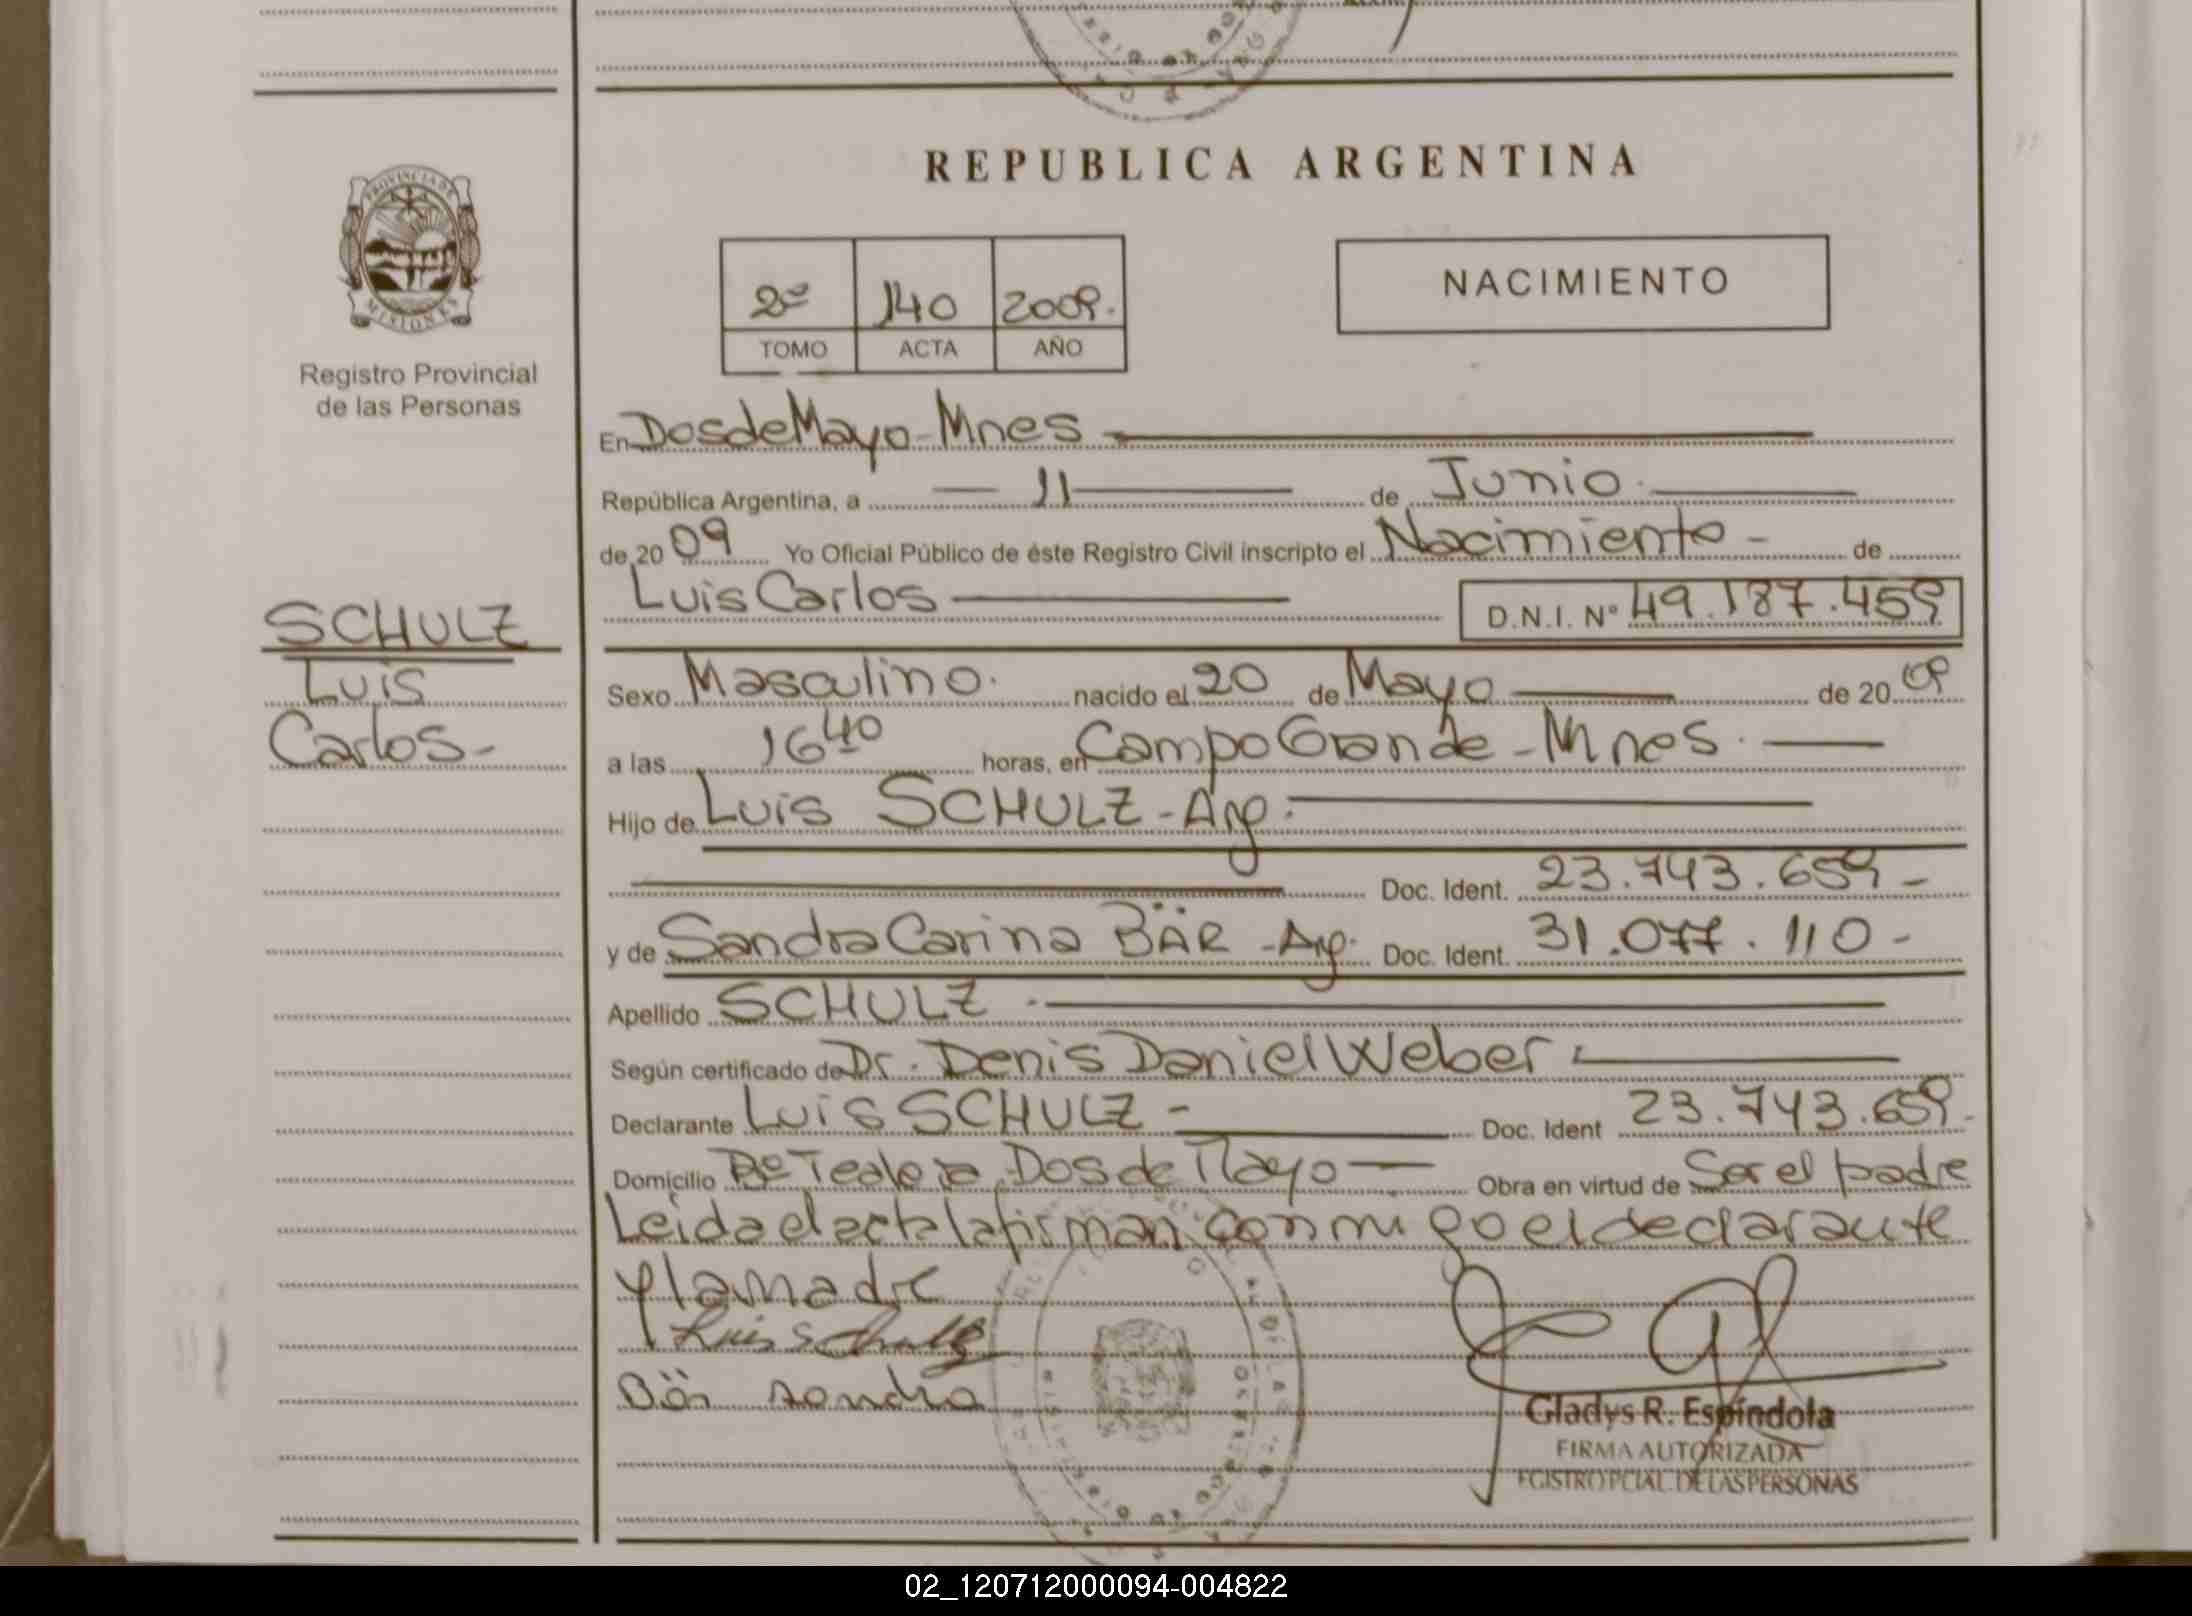 REPUBLICA ARGENTINA
PROVINCIA DE
MISIONES
Registro Provincial
de las Personas
2º 140 2009.
TOMO ACTA AÑO
NACIMIENTO
En Dos de Mayo - Mnes
República Argentina, a 11 de Junio.
de 2009 Yo Oficial Público de éste Registro Civil inscripto el Nacimiento - de
Luis Carlos D.N.I. Nº 49.187.459
SCHULZ
Luis
Carlos -
Sexo Masculino. nacido el 20 de Mayo de 2009
a las 16 40 horas, en Campo Grande - Mnes.
Hijo de Luis SCHULZ - Arg.
Doc. Ident. 23.743.659 -
y de Sandra Carina BÄR - Arg. Doc. Ident. 31.077.110 -
Apellido SCHULZ .
Según certificado de Dr. Denis Daniel Weber.
Declarante Luis SCHULZ - Doc. Ident 23.743.659.
Domicilio Bº Tealera Dos de Mayo Obra en virtud de Ser el padre
Leida el acta la firman conmigo el declarante
y la madre
Luis Schulz
Bär Sandra
Gladys R. Espíndola
FIRMA AUTORIZADA
EGISTRO PCIAL. DE LAS PERSONAS
02_120712000094-004822